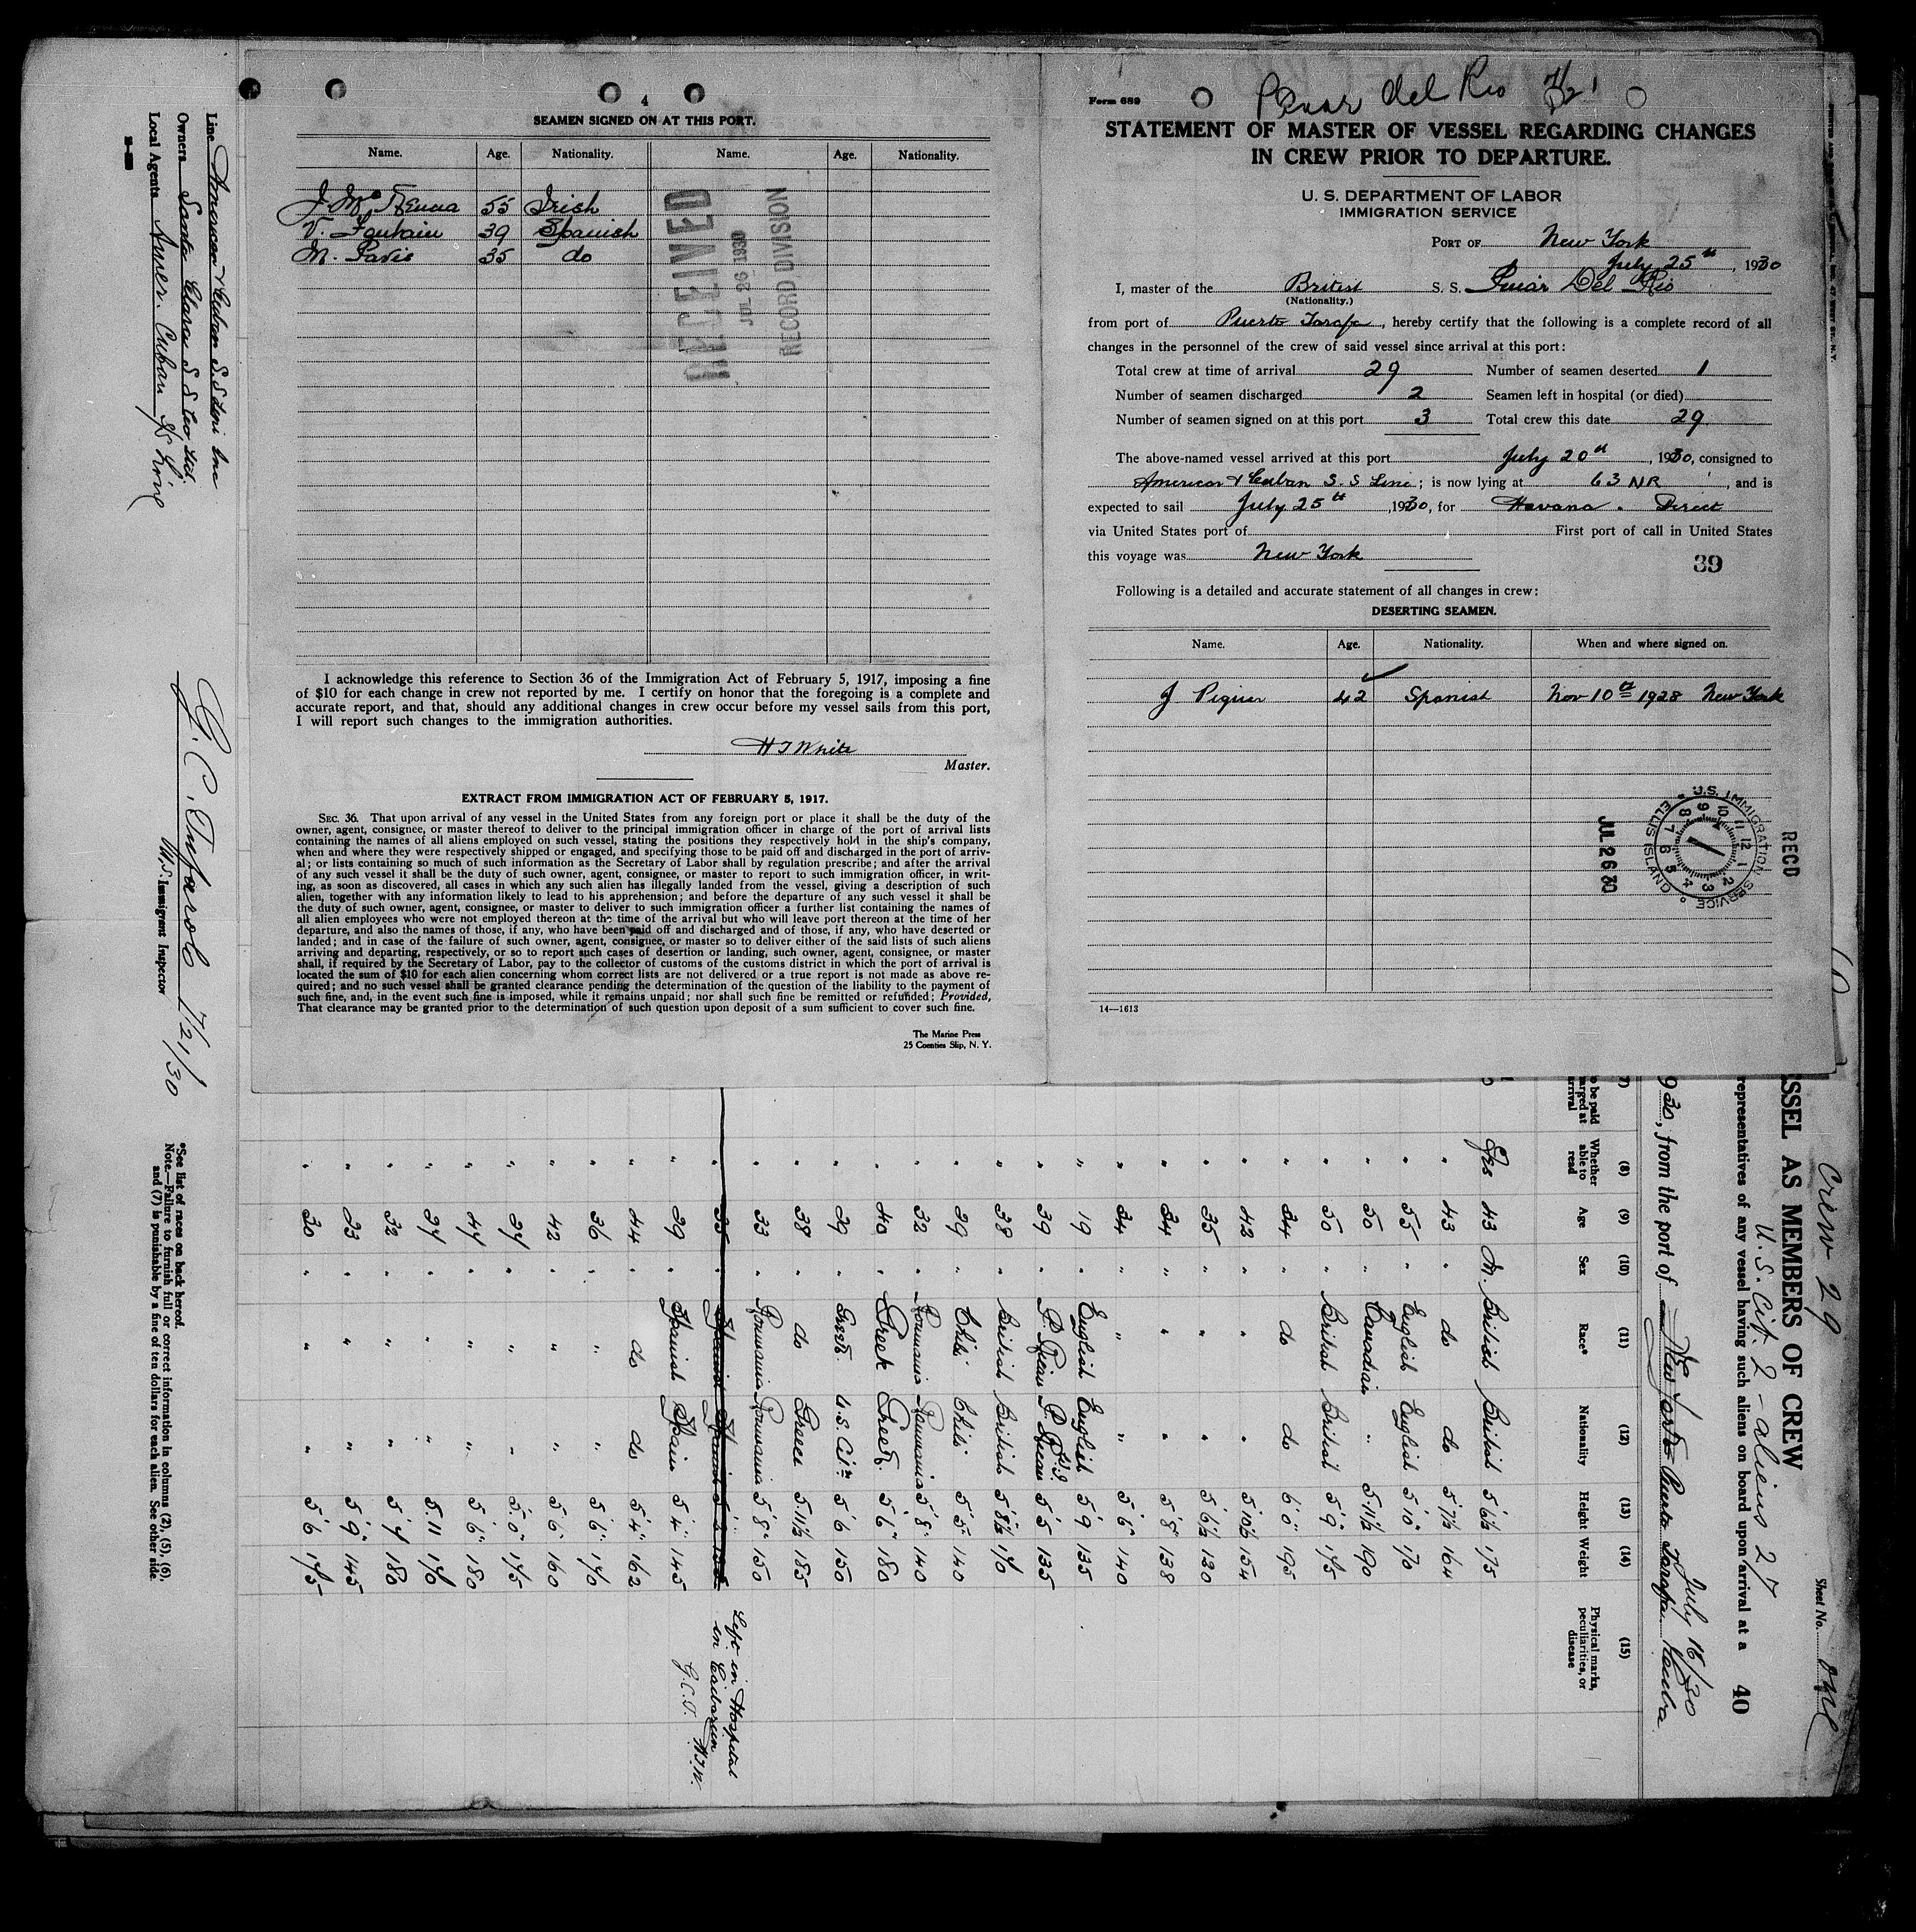 4
SEAMEN SIGNED ON AT THIS PORT.
Name. Age. Nationality. Name. Age. Nationality.
J. Mc Kenna 55 Irish
V. 39 Spanish
M. 35 do
RECEIVED
JUL 26 1930
RECORD DIVISION
I acknowledge this reference to Section 36 of the Immigration Act of February 5, 1917, imposing a fine
of $10 for each change in crew not reported by me. I certify on honor that the foregoing is a complete and
accurate report, and that, should any additional changes in crew occur before my vessel sails from this port,
I will report such changes to the immigration authorities.
H T White
Master.
EXTRACT FROM IMMIGRATION ACT OF FEBRUARY 5, 1917.
SEC. 36. That upon arrival of any vessel in the United States from any foreign port or place it shall be the duty of the
owner, agent, consignee, or master thereof to deliver to the principal immigration officer in charge of the port of arrival lists
containing the names of all aliens employed on such vessel, stating the positions they respectively hold in the ship's company,
when and where they were respectively shipped or engaged, and specifying those to be paid off and discharged in the port of arriv-
al; or lists containing so much of such information as the Secretary of Labor shall by regulation prescribe; and after the arrival
of any such vessel it shall be the duty of such owner, agent, consignee, or master to report to such immigration officer, in writ-
ing, as soon as discovered, all cases in which any such alien has illegally landed from the vessel, giving a description of such
alien, together with any information likely to lead to his apprehension; and before the departure of any such vessel it shall be
the duty of such owner, agent, consignee, or master to deliver to such immigration officer a further list containing the names of
all alien employees who were not employed thereon at the time of the arrival but who will leave port thereon at the time of her
departure, and also the names of those, if any, who have been paid off and discharged and of those, if any, who have deserted or
landed; and in case of the failure of such owner, agent, consignee, or master so to deliver either of the said lists of such aliens
arriving and departing, respectively, or so to report such cases of desertion or landing, such owner, agent, consignee, or master
shall, if required by the Secretary of Labor, pay to the collector of customs of the customs district in which the port of arrival is
located the sum of $10 for each alien concerning whom correct lists are not delivered or a true report is not made as above re-
quired; and no such vessel shall be granted clearance pending the determination of the question of the liability to the payment of
such fine, and, in the event such fine is imposed, while it remains unpaid; nor shall such fine be remitted or refunded; Provided,
That clearance may be granted prior to the determination of such question upon deposit of a sum sufficient to cover such fine.
The Marine Press
25 Coenties Slip, N. Y.
Form 689
Pinar del Rio 7/21
STATEMENT OF MASTER OF VESSEL REGARDING CHANGES
IN CREW PRIOR TO DEPARTURE.
U. S. DEPARTMENT OF LABOR
IMMIGRATION SERVICE
PORT OF New York
July 25th, 1930
I, master of the British S. S. Pinar Del Rio
(Nationality.)
from port of Puerto Tarafa, hereby certify that the following is a complete record of all
changes in the personnel of the crew of said vessel since arrival at this port:
Total crew at time of arrival 29 Number of seamen deserted 1
Number of seamen discharged 2 Seamen left in hospital (or died)
Number of seamen signed on at this port 3 Total crew this date 29
The above-named vessel arrived at this port July 20th, 1930, consigned to
American & Cuban S. S Line; is now lying at 63 NR, and is
expected to sail July 25th, 1930, for Havana. Direct
via United States port of First port of call in United States
this voyage was New York
39
Following is a detailed and accurate statement of all changes in crew:
DESERTING SEAMEN.
Name. Age. Nationality. When and where signed on.
J Piquer 42 Spanish Nov 10th 1928 New York
RECD
U.S. IMMIGRATION SERVICE
ELLIS ISLAND
JUL 26 30
14—1613
Line American & Cuban S.S Line Inc
Owners Santa Clara S S Co Ltd.
Local Agents Amer. Cuban S/S Line
G. C. Tufarolo 7/21/30
Immigrant Inspector
*See list of races on back hereof.
Note.—Failure to furnish full or correct information in columns (2), (5), (6),
and (7) is punishable by a fine of ten dollars for each alien. See other side.
Sheet No. one
Crew 29
U.S. Cit. 2 - aliens 27
SSEL AS MEMBERS OF CREW
representatives of any vessel having such aliens on board upon arrival at a 40
July 16/30
930, from the port of New York Puerto Tarafa Cuba
(8) (9) (10) (11) (12) (13) (14) (15)
Whether able to read Age Sex Race* Nationality Height Weight Physical marks, peculiarities, or disease
Yes 43 M. British British 5 6½ 175
" 43 " do do 5 7½ 164
" 55 " English English 5 10" 170
" 50 " Canadian " 5 11½ 190
" 50 " British British 5 9" 175
" 34 " do do 6' 0" 195
" 42 " " " 5 10½ 154
" 35 " " " 5 6½ 130
" 34 " " " 5 8" 138
" 34 " " " 5 6" 140
" 19 " English English 5 9 135
" 39 " 5 5 135
" 38 " British British 5 8½ 170
" 29 " Chili Chili 5 5" 140
" 32 " Roumania Roumania 5 8" 140
" 40 " Greek Greek. 5 6" 180
" 29 " Greek. U.S. Citn 5 6 150
" 38 " do Greece 5 11½ 185
" 33 " Roumania Roumania 5 8" 150
" 35 " Spanish Spanish
Left in Hospital
in Caibarien
H.T.W.
G.C.T.
" 29 " Spanish Spain 5 4" 145
" 44 " do do 5 4" 162
" 36 " " " 5 6" 170
" 42 " " " 5 6" 160
" 27 " " " 5. 0" 175
" 47 " " " 5 6" 180
" 27 " " " 5. 11 170
" 32 " " " 5 7 180
" 23 " " " 5' 9" 145
" 30 " " " 5' 6 175